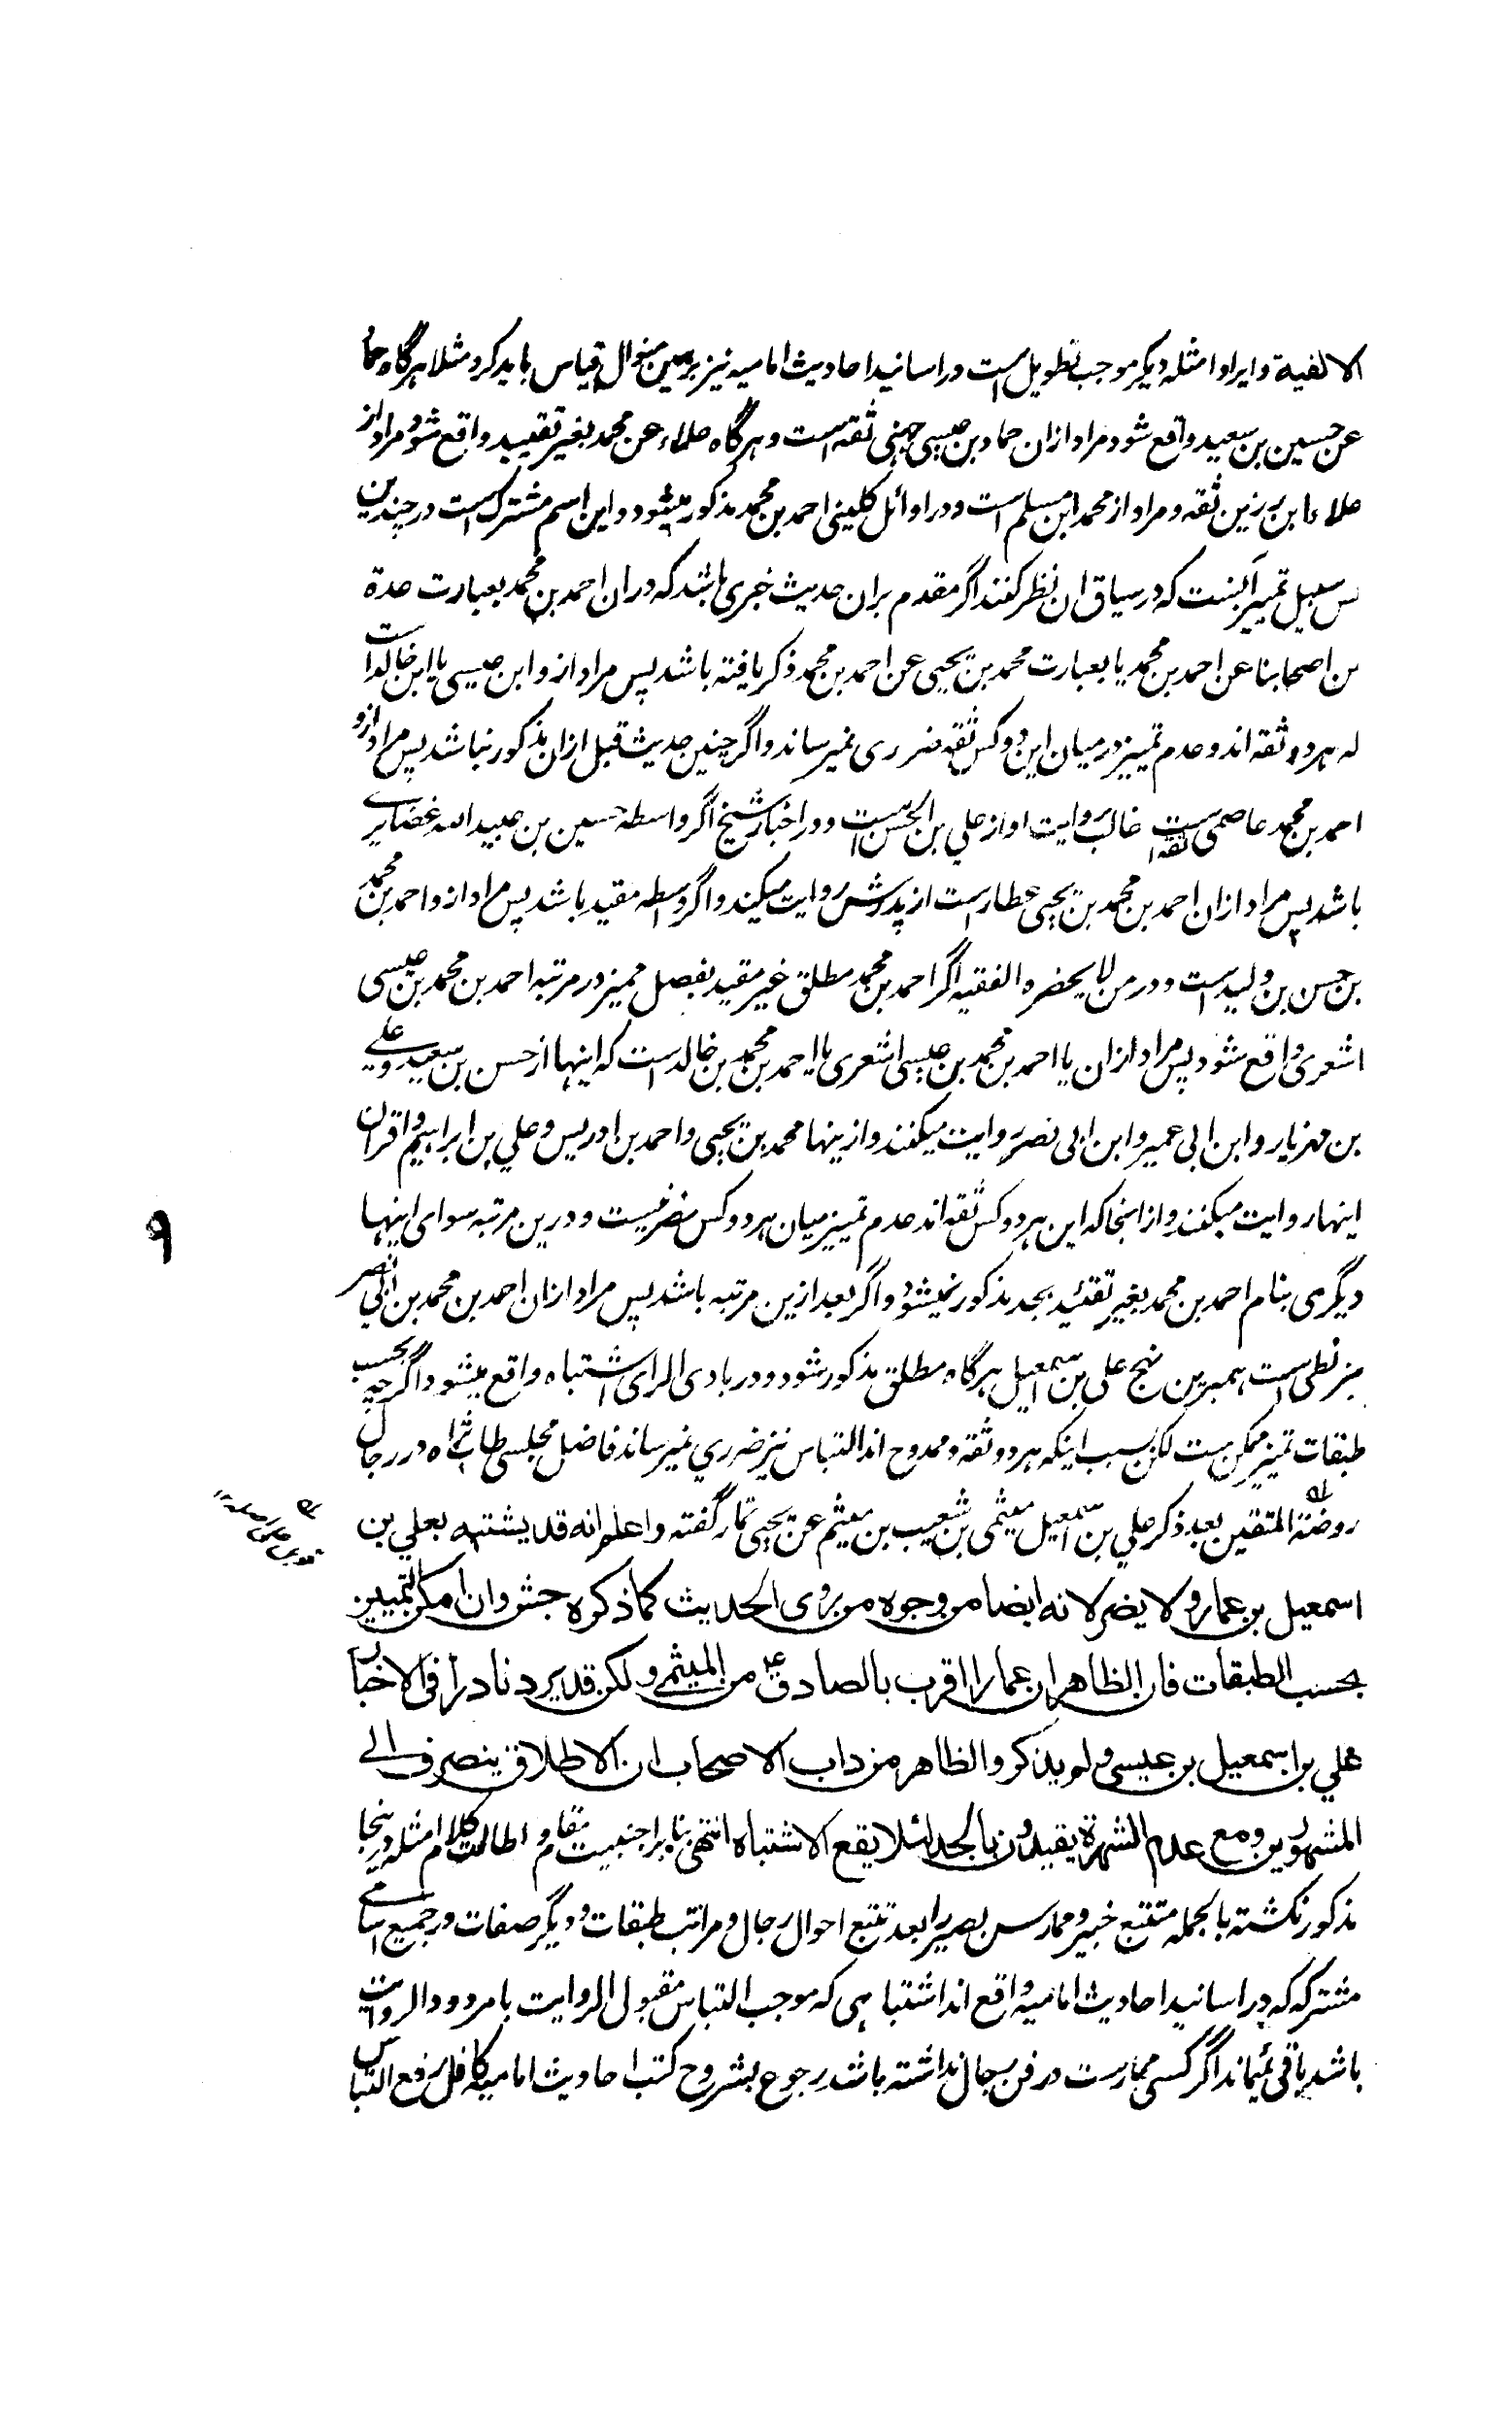 الالفیة وایراد امثله دیگر موجب تطویل است و در اسانید احادیث امامیه نیز برهمین منوال قیاس باید کرد مثلا هرگاه حماد
عن حسین بن سعید واقع شود مراد ازان حماد بن عیسی جهنی ثقه است و هرگاه علاء عن محمد بغیر تقیید واقع شود مراد از
علاء ابن رزین ثقه و مراد از محمد ابن مسلم است و در اوائل کلینی احمد بن محمد مذکور میشود و این اسم مشترک است در چندین
س سبیل تمییز آنست که در سیاق ان نظر کنند اگر مقدم بران حدیث خبری باشد که دران احمد بن محمد بعبارت عدة
من اصحابنا عن احمد بن محمد یا بعبارت محمد بن یحیی عن احمد بن محمد ذکر یافته باشد پس مراد ازو ابن عیسی یا ابن خالد است
له هر دو ثقه اند و عدم تمییز درمیان این دو کس ثقه ضرری نمیرساند و اگر چنین حدیث قبل ازان مذکور نباشد پس مراد ازو
احمد بن محمد عاصمی ثقه است غالب روایت او از علی بن الحسن است و در اخبار شیخ اگر واسطه حسین بن عبید الله غضایری
باشد پس مراد ازان احمد بن محمد بن یحیی عطار است از پدرش روایت میکند و اگر واسطه مفید باشد پس مراد ازو احمد بن محمد
بن حسن بن ولید است و در من لا یحضره الفقیه اگر احمد بن محمد مطلق غیر مقید بفصل ممیز در مرتبه احمد بن محمد بن عیسی
اشعری واقع شود پس مراد ازان یا احمد بن محمد بن عیسی اشعری یا احمد بن محمد بن خالد است که اینها از حسن بن سعید و علی
بن مهزیار و ابن ابی عمیر و ابن ابی نصر روایت میکنند و ازینها محمد بن یحیی و احمد بن ادریس و علی بن ابراهیم و اقران
اینها روایت میکنند و ازانجا که این هر دو کس ثقه اند عدم تمییز میان هر دو کس مضر نیست و درین مرتبه سوای اینها
۹
دیگری بنام احمد بن محمد بغیر تقئید بجد مذکور نمیشود و اگر بعد ازین مرتبه باشد پس مراد ازان احمد بن محمد بن ابی نصر
بزنطی است همبرین نهج علی بن اسمعیل هرگاه مطلق مذکور شود و در بادی الرای اشتباه واقع میشود اگرچه بحسب
طبقات تمییز ممکن ست لکن بسبب اینکه هر دو ثقه و ممدوح اند التباس نیز ضرری نمیرساند فاضل مجلسی طاب ثراه در رجال
روضة المتقین بعد ذکر علی بن اسمعیل میثمی بن شعیب بن میثم عن یحیی تمار گفته واعلم انه قد یشتبه بعلي بن
اسمعیل بن عمار ولا یضر لانه ایضا من وجوه من روی الحدیث کما ذکره جش وان امکن التمییز
بحسب الطبقات فان الظاهر ان عمارا اقرب بالصادق ع من المیثمی ولکن قد یرد نادرا فی الاخبار
علي بن اسمعیل بن عیسی ولم یذکر والظاهر من داب الاصحاب ان الاطلاق ینصرف الی
المشهورین ومع عدم الشهرة یقیدون بالجد لئلا یقع الاشتباه انتهی بنابر اجنبیت مقام و اطالت کلام امثله درینجا
مذکور نگشته بالجمله متتبع خبیر و ممارس بصیر را بعد تتبع احوال رجال و مراتب طبقات و دیگر صفات در جمیع اسامی
مشترکه که در اسانید احادیث امامیه واقع اند اشتباهی که موجب التباس مقبول الروایت بامردود الروایت
باشد باقی نمیماند اگر کسی ممارست در فن رجال نداشته باشد رجوع بشروح کتب احادیث امامیه کافل رفع التباس